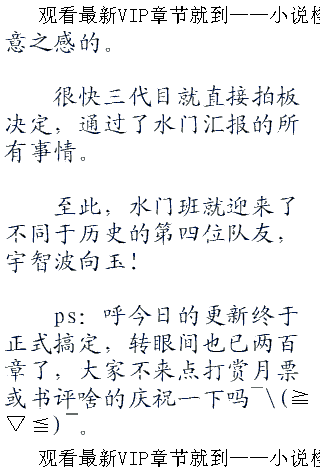 观看最新VIP章节就到——小说
意之感的。
很快三代目就直接拍板
决定，通过了水门汇报的所
有事情。
至此，水门班就迎来了
不同于历史的第四位队友，
宇智波向玉！
ps：呼今日的更新终于
正式搞定，转眼间也已两百
章了，大家不来点打赏月票
或书评啥的庆祝一下吗¯\(≧
▽≦)¯。
观看最新VIP章节就到——小说